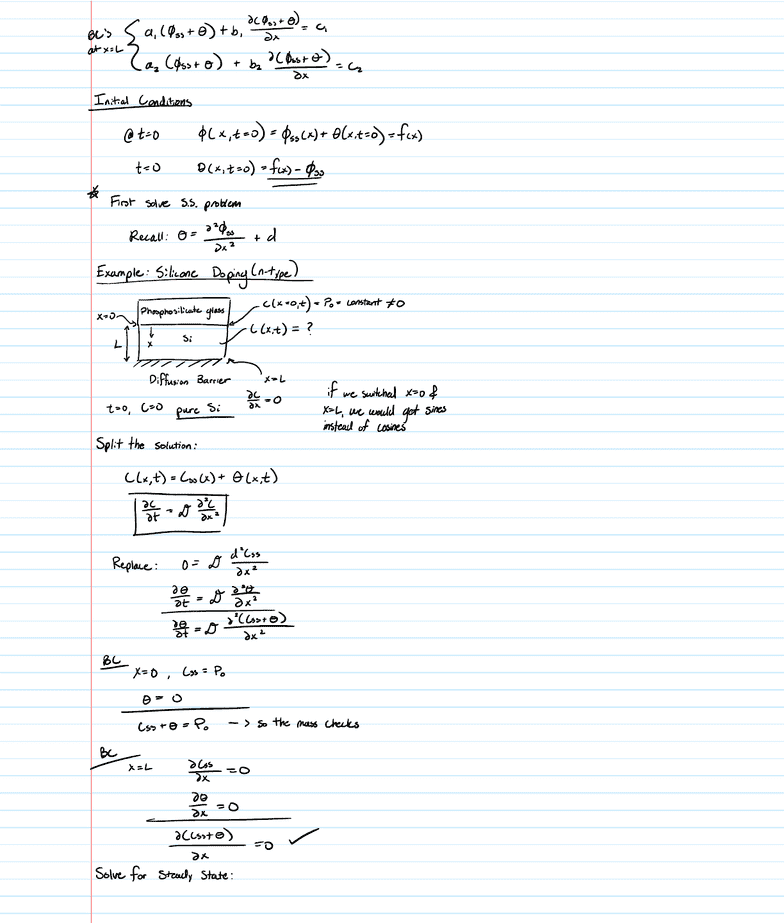 BC's at x=L { a₁(ϕss+θ) + b₁ ∂(ϕss+θ)/∂x = c₁
a₂(ϕss+θ) + b₂ ∂(ϕss+θ)/∂x = c₂
Initial Conditions
@ t=0 ϕ(x,t=0) = ϕss(x) + θ(x,t=0) = f(x)
t=0 θ(x,t=0) = f(x) - ϕss
* First solve S.S. problem
Recall: θ = ∂²ϕss/∂x² + d
Example: Silicone Doping (n-type)
x=0 Phosphosilicate glass C(x=0,t) = P₀ = constant ≠0
L x Si C(x,t) = ?
Diffusion Barrier x=L
t=0, C=0 pure Si ∂C/∂x = 0
if we switched x=0 &
x=L, we would get sines
instead of cosines
Split the solution:
C(x,t) = Css(x) + θ(x,t)
∂C/∂t = D ∂²C/∂x²
Replace: 0 = D d²Css/∂x²
∂θ/∂t = D ∂²θ/∂x²
∂θ/∂t = D ∂²(Css+θ)/∂x²
BC x=0, Css = P₀
θ = 0
Css + θ = P₀ -> so the mass checks
BC x=L ∂Css/∂x = 0
∂θ/∂x = 0
∂(Css+θ)/∂x = 0 ✓
Solve for Steady State: